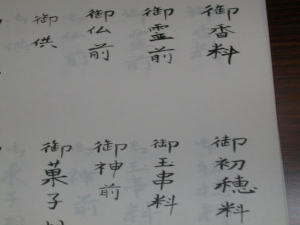 御香料
御霊前
御仏前
御供
御初穂料
御玉串料
御神前
御菓子